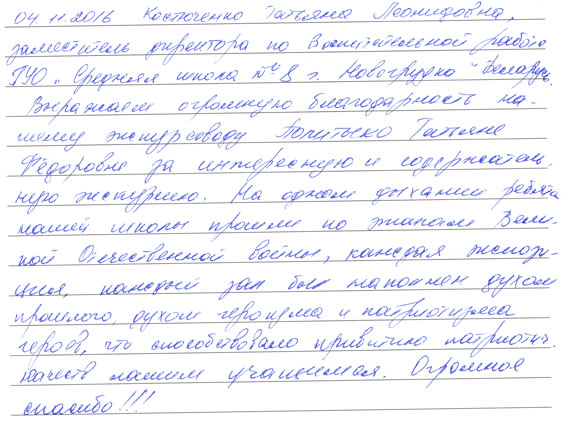 04.11.2016 Костюченко Татьяна Леонидовна,
заместитель директора по воспитательной работе
ГУО "Средняя школа № 8 г. Новогрудка" Беларусь.
Выражаем огромную благодарность на-
шему экскурсоводу Татьяне
Фёдоровне за интересную и содержатель-
ную экскурсию. На одном дыхании ребята
нашей школы прошли по этапам Вели-
кой Отечественной войны, каждая экспози-
ция, каждый зал был наполнен духом
прошлого, духом героизма и патриотизма
героев, что способствовало привитию патриотич.
качеств нашим учащимся. Огромное
спасибо!!!